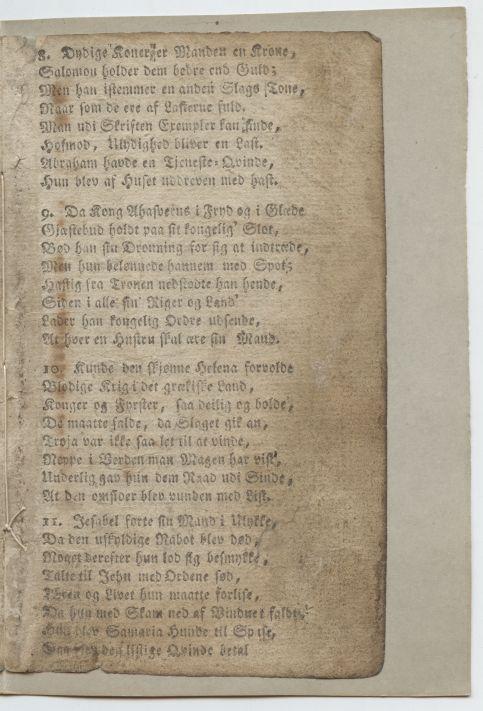 8. Dydige Koner er Manden en Krone,
Salomon holder dem bedre end Guld;
Men han istemmer en anden Slags Tone,
Naar som de ere af Lasterne fuld.
Man udi Skriften Exempler kan finde,
Hofmod, Ulydighed bliver en Last.
Abraham havde en Tjeneste-Qvinde,
Hun blev af Huset uddreven med Hast.
9. Da Kong Ahasverus i Fryd og i Glæde
Gjæstebud holdt paa sit kongelig' Slot,
Bød han sin Dronning for sig at indtræde,
Men hun belønnede hannem med Spot;
Hastig fra Tronen nedstødte han hende,
Siden i alle sin' Riger og Land'
Lader han kongelig Ordre udsende,
At hver en Hustru skal ære sin Mand.
10. Kunde den skjønne Helena forvolde
Blodige Krig i det grækiske Land,
Konger og Fyrster, saa deilig og bolde,
De maatte falde, da Slaget gik an,
Troja var ikke saa let til at vinde,
Neppe i Verden man Magen har vist,
Underlig gav hun dem Raad udi Sinde,
At den omsioer blev vunden med List.
11. Jesabel førte sin Mand i Ulykke,
Da den uskyldige Nabot blev død,
Noget derefter hun lod sig besmykke,
Talte til Jehu med Ordene sød,
Æren og Livet hun maatte forlise,
Da hun med Skam ned af Vinduet faldt,
Hun blev Samaria Hunde til Spise,
den listige Qvinde betal